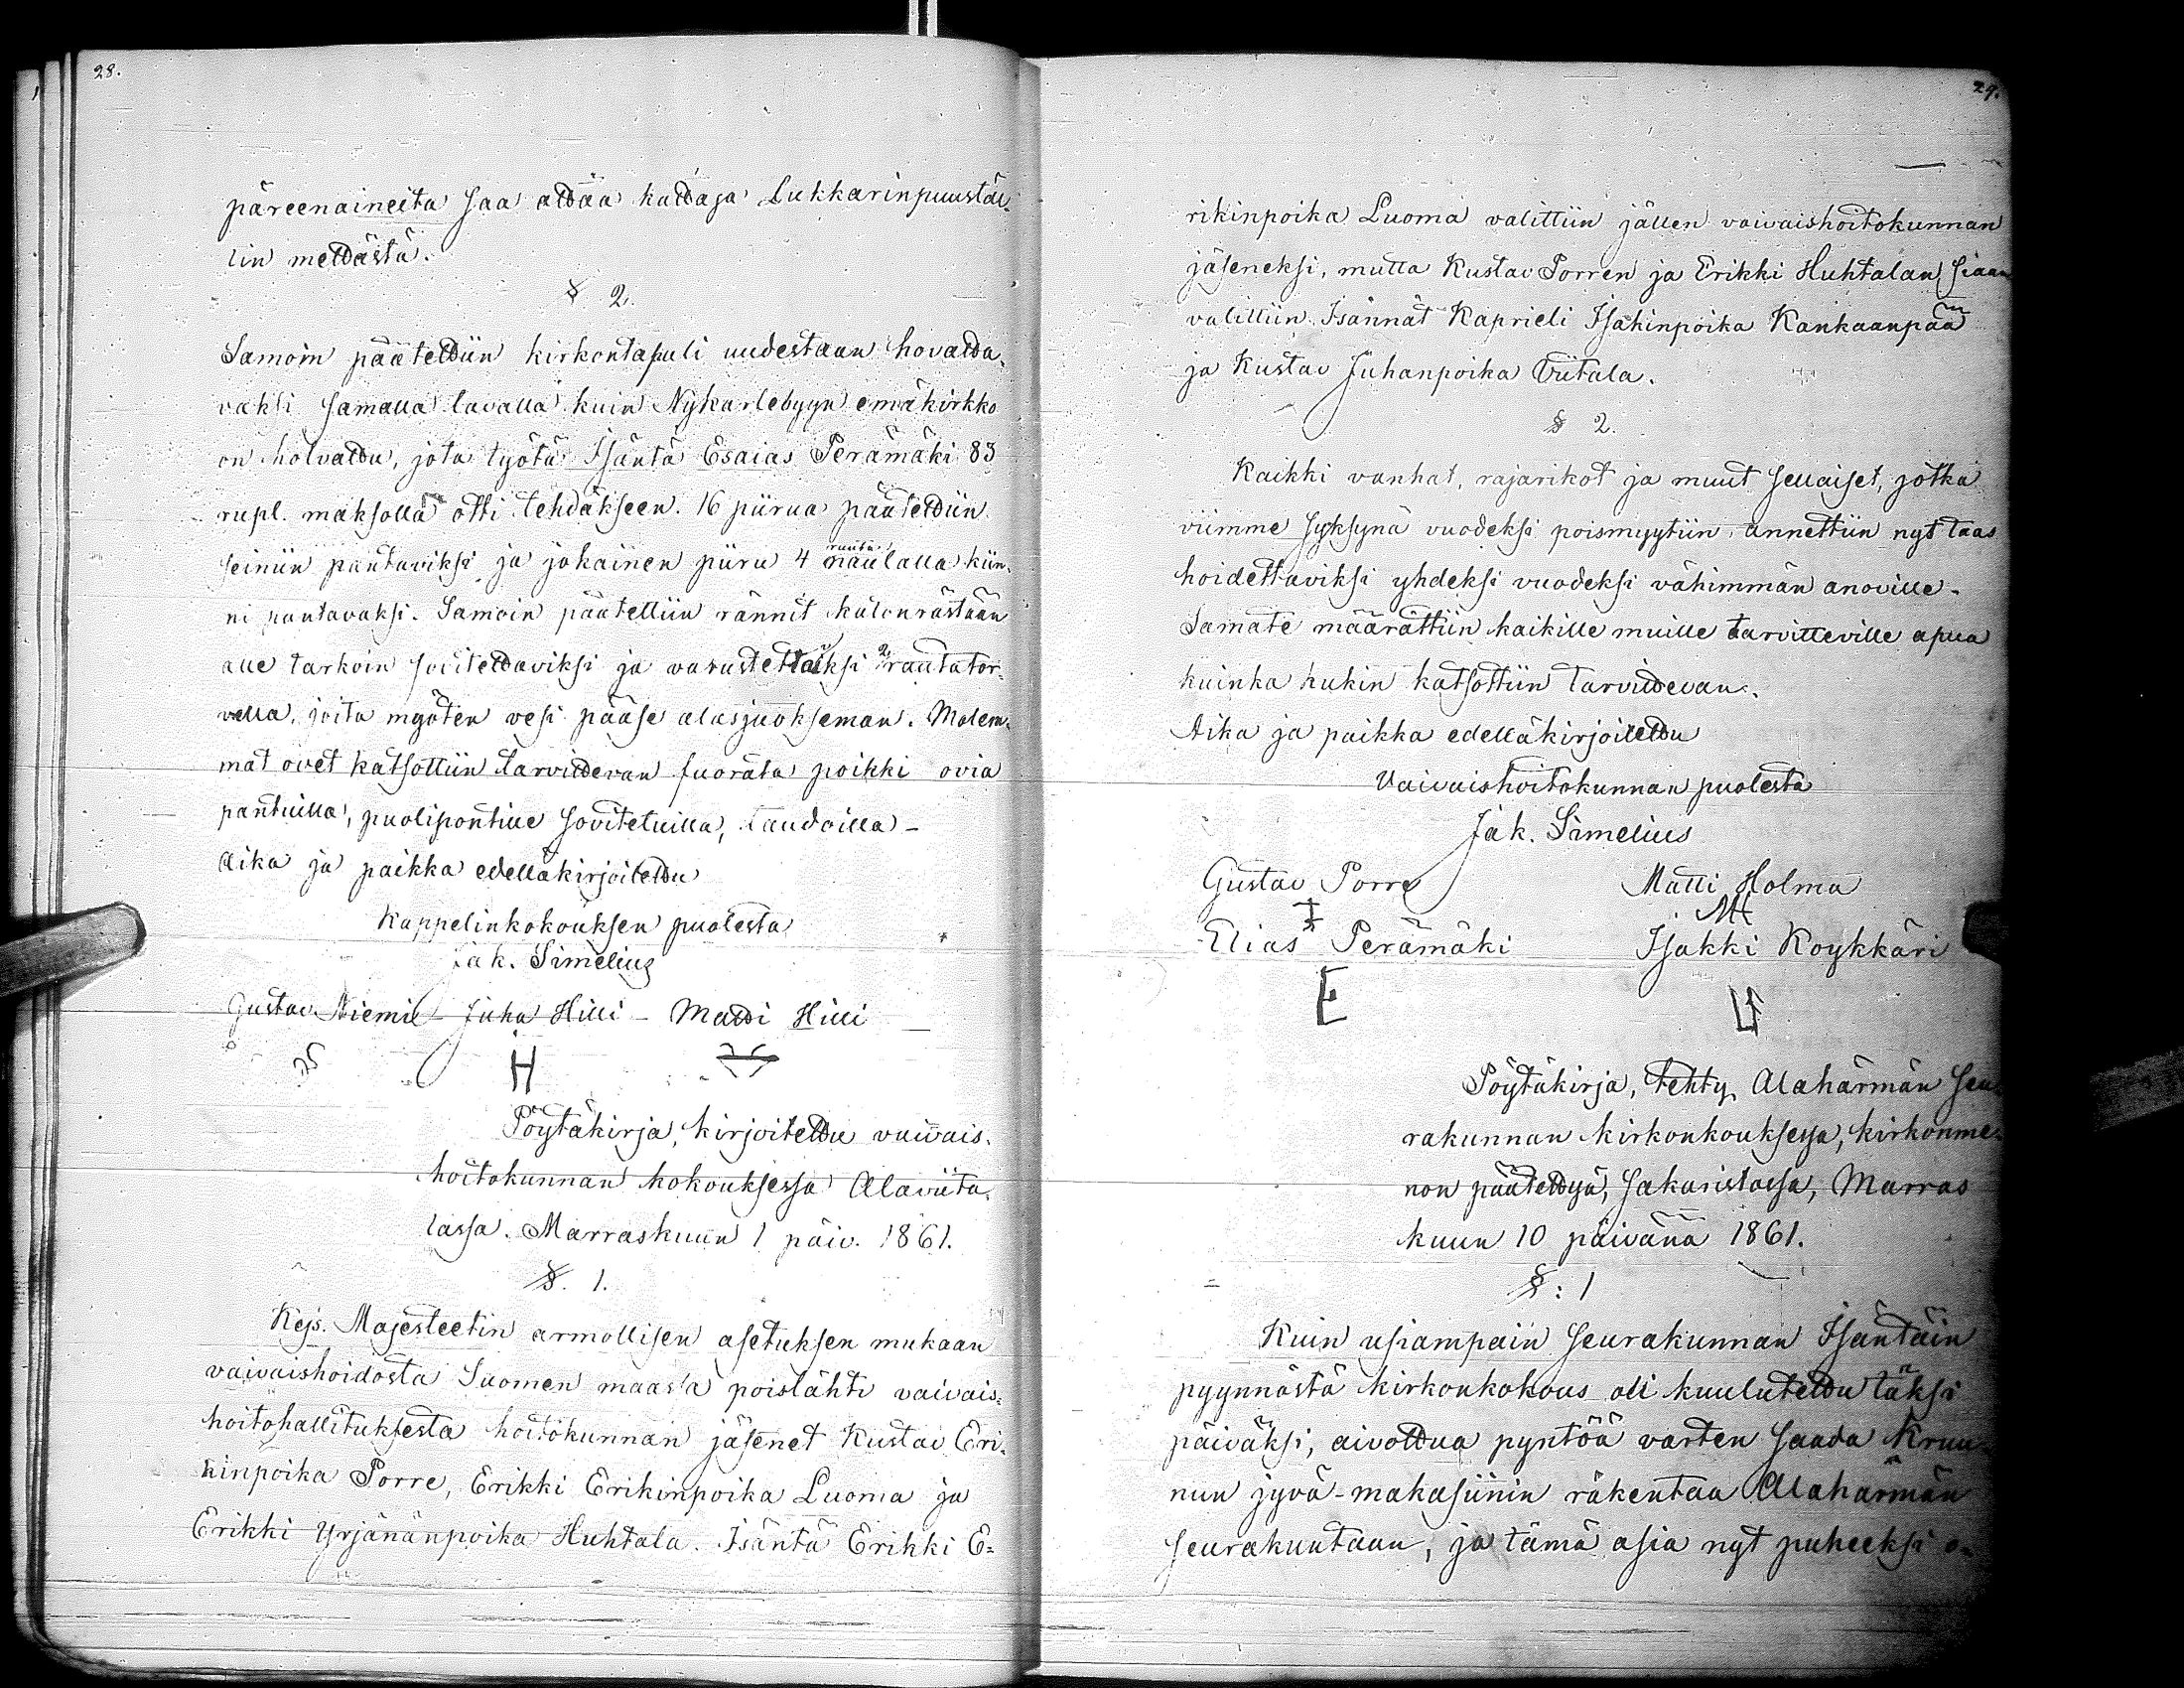 28.
päreenaineita saa ottaa kattaja Lukkarinpuustäl-
lin mettästä.
§ 2.
Samoin päätettiin kirkontapuli uudestaan hovatta-
vaksi samalla tavalla kuin Nykarlebyyn emäkirkko
on holvattu, jota työtä Isäntä Esaias Perämäki 83
rupl. maksolla otti tehdäkseen. 16 piirua päätettiin
seiniin pantaviksi ja jokainen piiru 4 rauta naulalla kiin-
ni pantavaksi. Samoin päätettiin rännit katonrästään
alle tarkoin sovitettaviksi ja varustettaviksi 2 rautator-
vella, joita myöten vesi pääse alasjuokseman. Molem-
mat ovet katsottiin tarvittevan suorata poikki ovia
pantuilla, puolipontille sovitetuilla, laudoilla -
Aika ja paikka edelläkirjoitettu
Kappelinkokouksen puolesta
Jak. Simelius
Gustav Niemi - Juha Hilli - Matti Hilli
H
Pöytäkirja, kirjoitettu vaivais-
hoitokunnan kokouksessa Alaviita-
lassa. Marraskuun 1 päiv. 1861.
§. 1.
Kejs. Majesteetin armollisen asetuksen mukaan
vaivaishoidosta Suomen maassa poislähti vaivais-
hoitohallituksesta hoitokunnan jäsenet Kustav Eri-
kinpoika Porre, Erikki Erikinpoika Luoma ja
Erikki Yrjänänpoika Huhtala. Isäntä Erikki E-
29.
rikinpoika Luoma valittiin jällen vaivaishoitokunnan
jäseneksi, mutta Kustav Porren ja Erikki Huhtalan siaan
valittiin Isännät Kaprieli Isakinpoika Kankaanpää
ja Kustav Juhanpoika Viitala.
§ 2.
Kaikki vanhat, rajarikot ja muut sellaiset, jotka
viimme syksynä vuodeksi poismyytiin, annettiin nyt taas
hoidettaviksi yhdeksi vuodeksi vähimmän anoville.
Samate määrättiin kaikille muille tarvitteville apua
kuinka kukin katsottiin tarvittevan.
Aika ja paikka edelläkirjoitettu
Vaivaishoitokunnan puolesta
Jak. Simelius
Gustav Porre Matti Holma
MH
Elias Perämäki Isakki Koykkäri
E
Pöytäkirja, tehty Alahärmän seu-
rakunnan kirkonkouksessa, kirkonme-
non päätettyä, sakaristossa, Marras
kuun 10 päivänä 1861.
§: 1
Kuin usiampain seurakunnan Isäntäin
pyynnöstä kirkonkokous oli kuulutettu täksi
päiväksi, aivottua pyntöä varten saada Kruu-
nun jyvä-makasiinin rakentaa Alahärmän
seurakuntaan, ja tämä asia nyt puheeksi o-